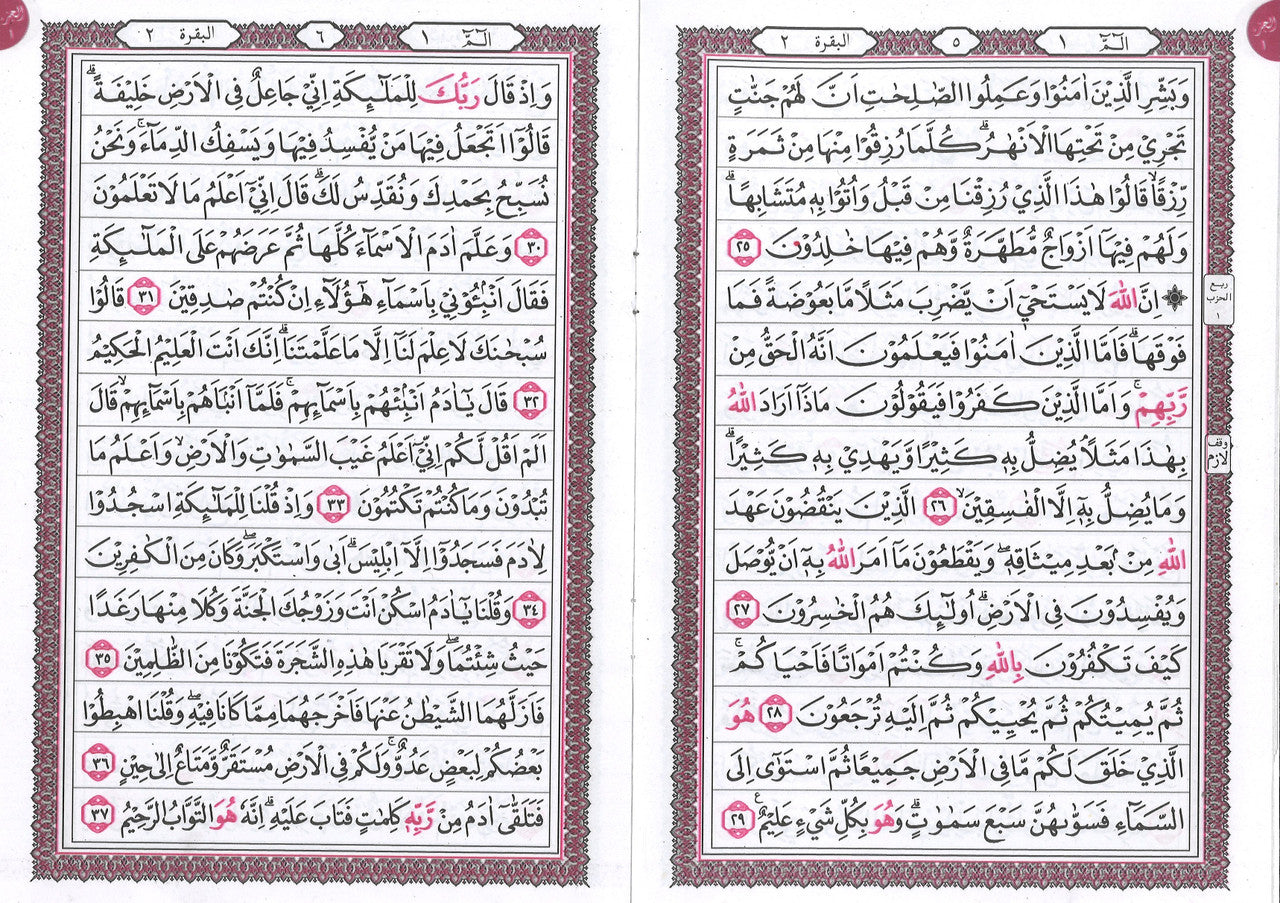 الٓمّٓ ١
٥
البقرة ٢
وَبَشِّرِ الَّذِيْنَ اٰمَنُوْا وَعَمِلُوا الصّٰلِحٰتِ اَنَّ لَهُمْ جَنّٰتٍ
تَجْرِيْ مِنْ تَحْتِهَا الْاَنْهٰرُ ۗ كُلَّمَا رُزِقُوْا مِنْهَا مِنْ ثَمَرَةٍ
رِّزْقًا ۙ قَالُوْا هٰذَا الَّذِيْ رُزِقْنَا مِنْ قَبْلُ وَاُتُوْا بِهٖ مُتَشَابِهًا ۗ
وَلَهُمْ فِيْهَآ اَزْوَاجٌ مُّطَهَّرَةٌ وَّهُمْ فِيْهَا خٰلِدُوْنَ ٢٥
۞ اِنَّ اللّٰهَ لَا يَسْتَحْيٖٓ اَنْ يَّضْرِبَ مَثَلًا مَّا بَعُوْضَةً فَمَا
فَوْقَهَا ۗ فَاَمَّا الَّذِيْنَ اٰمَنُوْا فَيَعْلَمُوْنَ اَنَّهُ الْحَقُّ مِنْ
رَّبِّهِمْ ۚ وَاَمَّا الَّذِيْنَ كَفَرُوْا فَيَقُوْلُوْنَ مَاذَآ اَرَادَ اللّٰهُ
بِهٰذَا مَثَلًا ۘ يُضِلُّ بِهٖ كَثِيْرًا وَّيَهْدِيْ بِهٖ كَثِيْرًا ۗ
وَمَا يُضِلُّ بِهٖٓ اِلَّا الْفٰسِقِيْنَ ۙ ٢٦ الَّذِيْنَ يَنْقُضُوْنَ عَهْدَ
اللّٰهِ مِنْۢ بَعْدِ مِيْثَاقِهٖ ۖ وَيَقْطَعُوْنَ مَآ اَمَرَ اللّٰهُ بِهٖٓ اَنْ يُّوْصَلَ
وَيُفْسِدُوْنَ فِى الْاَرْضِ ۗ اُولٰۤىِٕكَ هُمُ الْخٰسِرُوْنَ ٢٧
كَيْفَ تَكْفُرُوْنَ بِاللّٰهِ وَكُنْتُمْ اَمْوَاتًا فَاَحْيَاكُمْ ۚ
ثُمَّ يُمِيْتُكُمْ ثُمَّ يُحْيِيْكُمْ ثُمَّ اِلَيْهِ تُرْجَعُوْنَ ٢٨ هُوَ
الَّذِيْ خَلَقَ لَكُمْ مَّا فِى الْاَرْضِ جَمِيْعًا ثُمَّ اسْتَوٰٓى اِلَى
السَّمَاۤءِ فَسَوّٰىهُنَّ سَبْعَ سَمٰوٰتٍ ۗ وَهُوَ بِكُلِّ شَيْءٍ عَلِيْمٌ ࣖ ٢٩
ربع
الحزب
١
وقف
لازم
الٓمّٓ ١
٦
البقرة ٢
وَاِذْ قَالَ رَبُّكَ لِلْمَلٰۤىِٕكَةِ اِنِّيْ جَاعِلٌ فِى الْاَرْضِ خَلِيْفَةً ۗ
قَالُوْٓا اَتَجْعَلُ فِيْهَا مَنْ يُّفْسِدُ فِيْهَا وَيَسْفِكُ الدِّمَاۤءَ ۚ وَنَحْنُ
نُسَبِّحُ بِحَمْدِكَ وَنُقَدِّسُ لَكَ ۗ قَالَ اِنِّيْٓ اَعْلَمُ مَا لَا تَعْلَمُوْنَ
٣٠ وَعَلَّمَ اٰدَمَ الْاَسْمَاۤءَ كُلَّهَا ثُمَّ عَرَضَهُمْ عَلَى الْمَلٰۤىِٕكَةِ
فَقَالَ اَنْۢبِـُٔوْنِيْ بِاَسْمَاۤءِ هٰٓؤُلَاۤءِ اِنْ كُنْتُمْ صٰدِقِيْنَ ٣١ قَالُوْا
سُبْحٰنَكَ لَا عِلْمَ لَنَآ اِلَّا مَا عَلَّمْتَنَا ۗ اِنَّكَ اَنْتَ الْعَلِيْمُ الْحَكِيْمُ
٣٢ قَالَ يٰٓاٰدَمُ اَنْۢبِئْهُمْ بِاَسْمَاۤىِٕهِمْ ۚ فَلَمَّآ اَنْۢبَاَهُمْ بِاَسْمَاۤىِٕهِمْ ۙ قَالَ
اَلَمْ اَقُلْ لَّكُمْ اِنِّيْٓ اَعْلَمُ غَيْبَ السَّمٰوٰتِ وَالْاَرْضِ ۙ وَاَعْلَمُ مَا
تُبْدُوْنَ وَمَا كُنْتُمْ تَكْتُمُوْنَ ٣٣ وَاِذْ قُلْنَا لِلْمَلٰۤىِٕكَةِ اسْجُدُوْا
لِاٰدَمَ فَسَجَدُوْٓا اِلَّآ اِبْلِيْسَ ۗ اَبٰى وَاسْتَكْبَرَ ۖ وَكَانَ مِنَ الْكٰفِرِيْنَ
٣٤ وَقُلْنَا يٰٓاٰدَمُ اسْكُنْ اَنْتَ وَزَوْجُكَ الْجَنَّةَ وَكُلَا مِنْهَا رَغَدًا
حَيْثُ شِئْتُمَا ۖ وَلَا تَقْرَبَا هٰذِهِ الشَّجَرَةَ فَتَكُوْنَا مِنَ الظّٰلِمِيْنَ ٣٥
فَاَزَلَّهُمَا الشَّيْطٰنُ عَنْهَا فَاَخْرَجَهُمَا مِمَّا كَانَا فِيْهِ ۖ وَقُلْنَا اهْبِطُوْا
بَعْضُكُمْ لِبَعْضٍ عَدُوٌّ ۚ وَلَكُمْ فِى الْاَرْضِ مُسْتَقَرٌّ وَّمَتَاعٌ اِلٰى حِيْنٍ ٣٦
فَتَلَقّٰٓى اٰدَمُ مِنْ رَّبِّهٖ كَلِمٰتٍ فَتَابَ عَلَيْهِ ۗ اِنَّهٗ هُوَ التَّوَّابُ الرَّحِيْمُ ٣٧